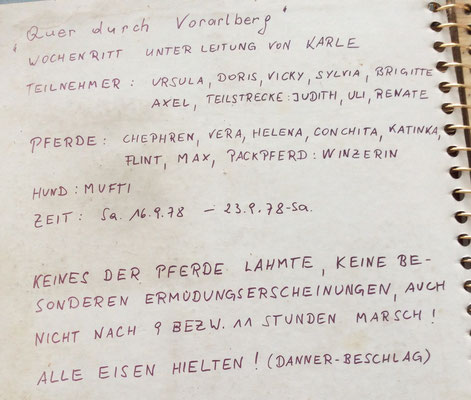 "Quer durch Vorarlberg"
WOCHENRITT UNTER LEITUNG VON KARLE
TEILNEHMER: URSULA, DORIS, VICKY, SYLVIA, BRIGITTE
AXEL, TEILSTRECKE: JUDITH, ULI, RENATE
PFERDE: CHEPHREN, VERA, HELENA, CONCHITA, KATINKA,
FLINT, MAX, PACKPFERD: WINZERIN
HUND: MUFTI
ZEIT: Sa. 16.9.78 – 23.9.78-Sa.
KEINES DER PFERDE LAHMTE, KEINE BE-
SONDEREN ERMÜDUNGSERSCHEINUNGEN, AUCH
NICHT NACH 9 BEZW. 11 STUNDEN MARSCH!
ALLE EISEN HIELTEN! (DANNER-BESCHLAG)